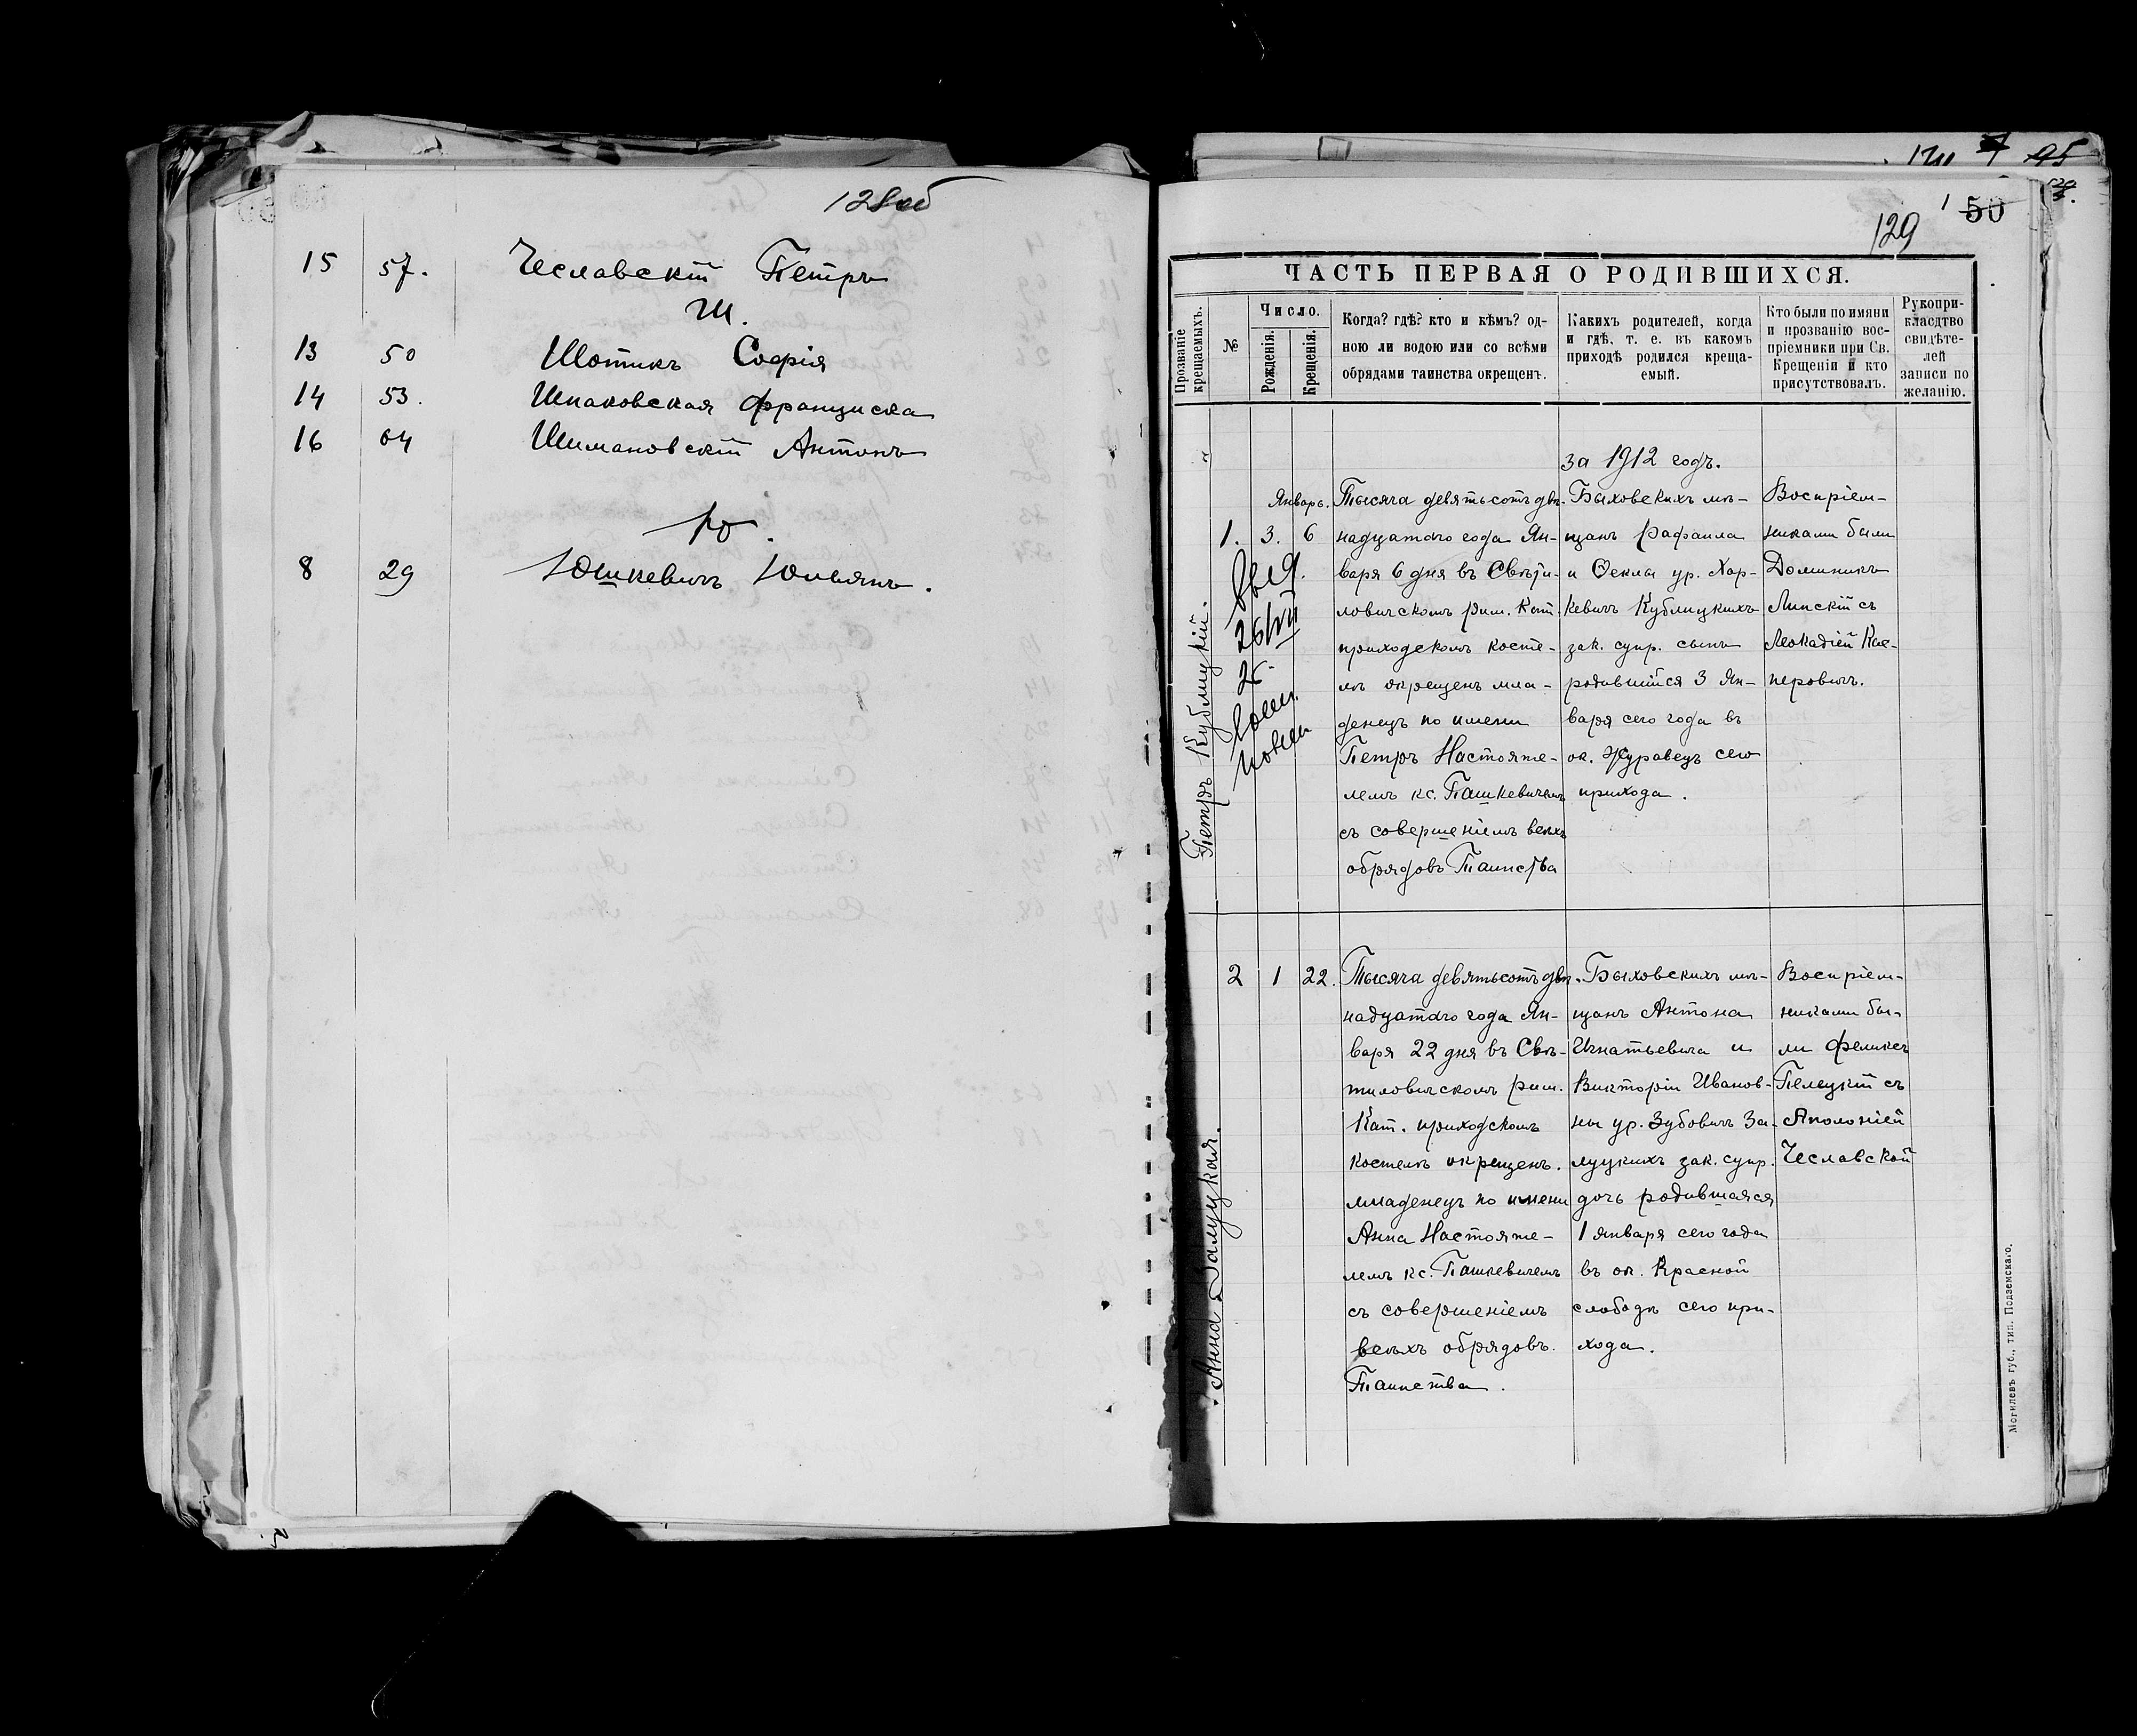 128об
15 57. Чеславскій Петръ
Ш.
13 50 Шотикъ Софія
14 53. Шпаковская Франциска
16 64 Шимановскій Антонъ
Ю.
8 29 Юшкевичъ Юльянъ.
95
129
1 50
ЧАСТЬ ПЕРВАЯ О РОДИВШИХСЯ.
Прозваніе крещаемыхъ.
№
Число.
Рожденія.
Крещенія.
Когда? гдѣ? кто и кѣмъ? од-
ною ли водою или со всѣми
обрядами таинства окрещенъ.
Какихъ родителей, когда
и гдѣ, т. е. въ какомъ
приходѣ родился креща-
емый.
Кто были по имяни
и прозванію вос-
пріемники при Св.
Крещеніи и кто
присутствовалъ.
Рукопри-
класдтво
свидѣте-
лей
записи по
желанію.
за 1912 годъ.
Петръ Кублицкій.
Январь.
1. 3. 6
Выд.
26/VII
25
Тысяча девятьсотъ двѣ-
надцатаго года Ян-
варя 6 дня въ Свѣти-
ловичскомъ рим. Кат.
приходскомъ косте-
лѣ окрещенъ мла-
денецъ по имени
Петръ Настояте-
лемъ кс. Пашкевичемъ
съ совершеніемъ всѣхъ
обрядовъ Таинства
Быховскихъ мѣ-
щанъ Рафаила
и Ѳеклы ур. Хар-
кевичъ Кублицкихъ
зак. супр. сынъ
родившійся 3 Ян-
варя сего года въ
ок. Журавецъ сего
прихода.
Воспріем-
никами были
Доминикъ
Липскій съ
Леокадіей Кас-
перовичъ.
Анна Залуцкая.
2 1 22.
Тысяча девятьсотъ двѣ-
надцатаго года Ян-
варя 22 дня въ Свѣ-
тиловичскомъ рим.
Кат. приходскомъ
костелѣ окрещенъ.
младенецъ по имени
Анна Настояте-
лемъ кс. Пашкевичемъ
съ совершеніемъ
всѣхъ обрядовъ.
Таинства.
Быховскихъ мѣ-
щанъ Антона
Игнатьевича и
Викторіи Иванов-
ны ур. Зубовичъ За-
луцкихъ зак. супр.
дочь родившаяся
1 января сего года
въ ок. Красной
слободѣ сего при-
хода.
Воспріем-
никами бы-
ли Феликсъ
Пелецкій съ
Аполоніей
Чеславской
Могилевъ губ., тип. Подземскаго.